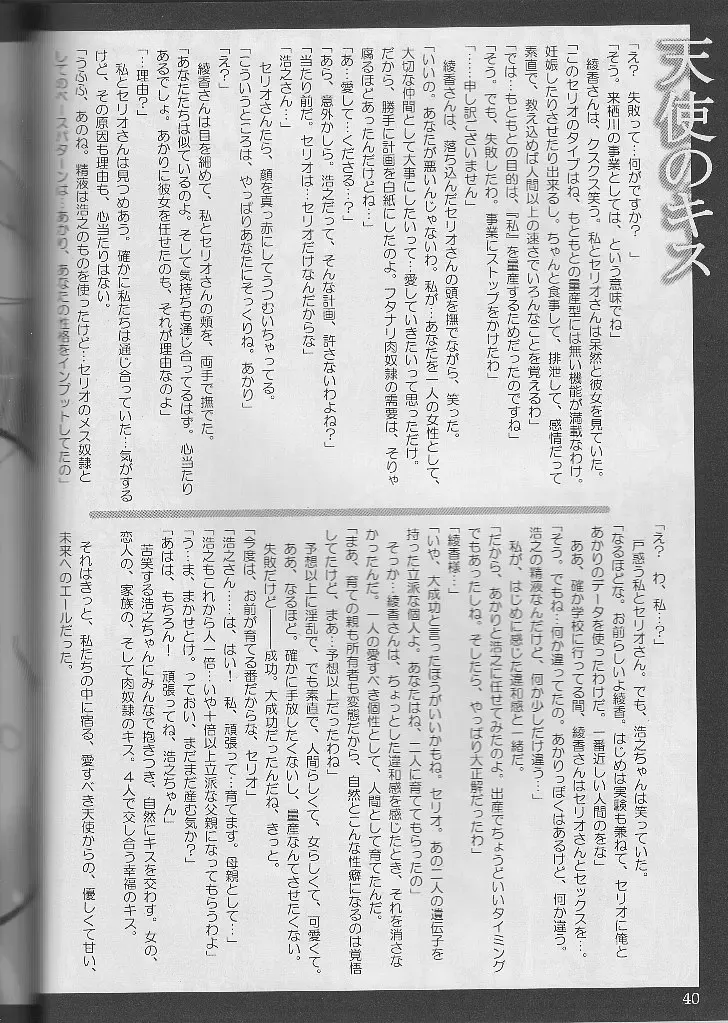 天使のキス
「え? 失敗って…何がですか? 」
「そう。来栖川の事業としては、という意味でね」
綾香さんは、クスクス笑う。私とセリオさんは呆然と彼女を見ていた。
「このセリオのタイプはね、もともとの量産型には無い機能が満載なわけ。
妊娠したりさせたり出来るし。ちゃんと食事して、排泄して、感情だって
素直で、教え込めば人間以上の速さでいろんなことを覚えるわ」
「では…もともとの目的は、『私』を量産するためだったのですね」
「そう。でも、失敗したわ。事業にストップをかけたわ」
「……申し訳ございません」
綾香さんは、落ち込んだセリオさんの頭を撫でながら、笑った。
「いいの。あなたが悪いんじゃないわ。私が…あなたを一人の女性として、
大切な仲間として大事にしたいって…愛していきたいって思っただけ。
だから、勝手に計画を白紙にしたのよ。フタナリ肉奴隷の需要は、そりゃ
腐るほどあったんだけどね…」
「あ…愛して…くださる…?」
「あら、意外かしら。浩之だって、そんな計画、許さないわよね?」
「当たり前だ。セリオは…セリオだけなんだからな」
「浩之さん…」
セリオさんたら、顔を真っ赤にしてうつむいちゃってる。
「こういうところは、やっぱりあなたにそっくりね。あかり」
「え?」
綾香さんは目を細めて、私とセリオさんの頬を、両手で撫でた。
「あなたたちは似ているのよ。そして気持ちも通じ合ってるはず。心当たり
あるでしょ。あかりに彼女を任せたのも、それが理由なのよ」
「…理由?」
私とセリオさんは見つめあう。確かに私たちは通じ合っていた…気がする
けど、その原因も理由も、心当たりはない。
「うふふ、あのね。精液は浩之のものを使ったけど…セリオのメス奴隷と
してのベースパターンは…あかり、あなたの性格をインプットしてたの」
「え? わ、私…?」
戸惑う私とセリオさん。でも、浩之ちゃんは笑っていた。
「なるほどな。お前らしいよ綾香。はじめは実験も兼ねて、セリオに俺と
あかりのデータを使ったわけだ。一番近しい人間のをな」
ああ、確か学校に行ってる間、綾香さんはセリオさんとセックスを…。
「そう。でもね…何か違ってたの。あかりっぽくはあるけど、何か違う。
浩之の精液なんだけど、何か少しだけ違う…」
私が、はじめに感じた違和感と一緒だ。
「だから、あかりと浩之に任せてみたのよ。出産でちょうどいいタイミング
でもあったしね。そしたら、やっぱり大正解だったわ」
「綾香様…」
「いや、大成功と言ったほうがいいかもね。セリオ。あの二人の遺伝子を
持った立派な個人よ、あなたはね、二人に育ててもらったの」
そっか…綾香さんは、ちょっとした違和感を感じたとき、それを消さな
かったんだ。人の愛すべき個性として、人間として育てたんだ。
「まあ、育ての親も所有者も変態だから、自然とこんな性癖になるのは覚悟
してたけど、まあ…予想以上だったわね」
予想以上に淫乱で、でも素直で、人間らしくて、女らしくて、可愛くて。
ああ、なるほど。確かに手放したくないし、量産なんてさせたくない。
失敗だけど――成功。大成功だったんだね、きっと。
「今度は、お前が育てる番だからな、セリオ」
「浩之さん……は、はい! 私、頑張って…育てます。母親として…」
「浩之もこれから人一倍…いや十倍以上立派な父親になってもらうわよ」
「う…ま、まかせとけ。っておい、まだまだ産む気か?」
「あはは、もちろん! 頑張ってね、浩之ちゃん」
苦笑する浩之ちゃんにみんなで抱きつき、自然にキスを交わす。女の、
恋人の、家族の、そして肉奴隷のキス。4人で交し合う幸福のキス。
それはきっと、私たちの中に宿る、愛すべき天使からの、優しくて甘い、
未来へのエールだった。
40